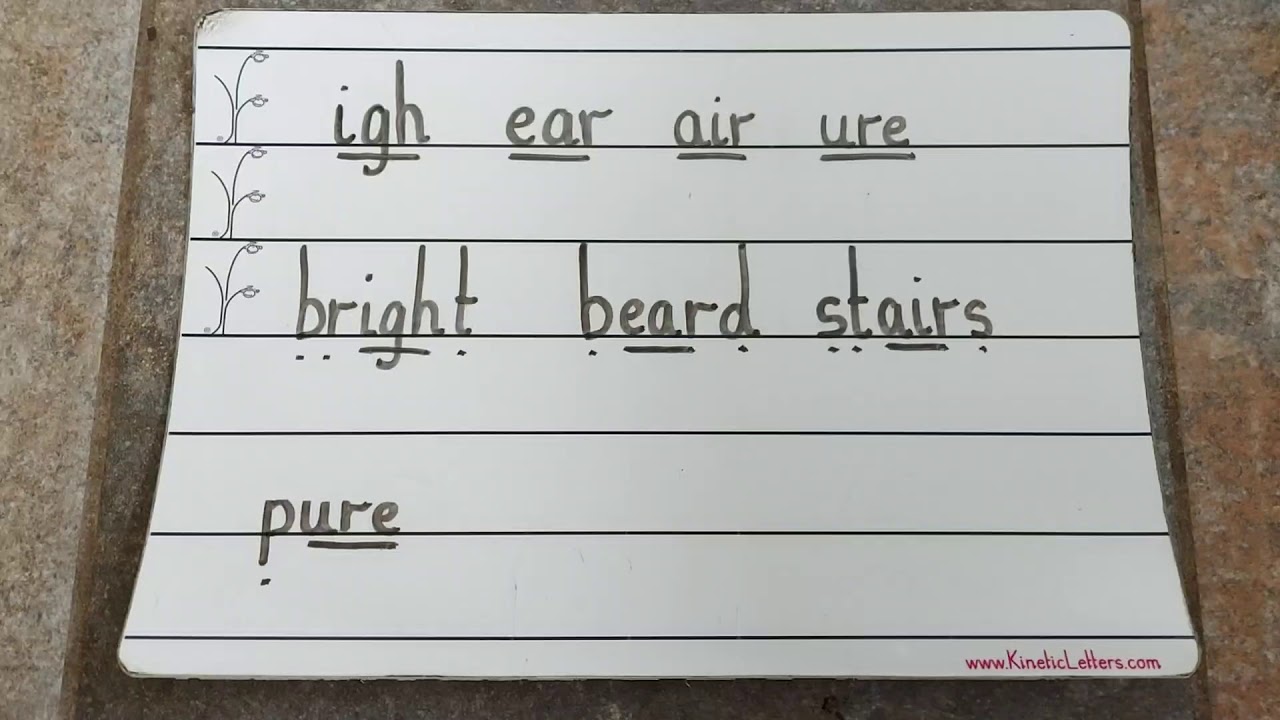 igh ear air ure
bright beard stairs
pure
www.KineticLetters.com